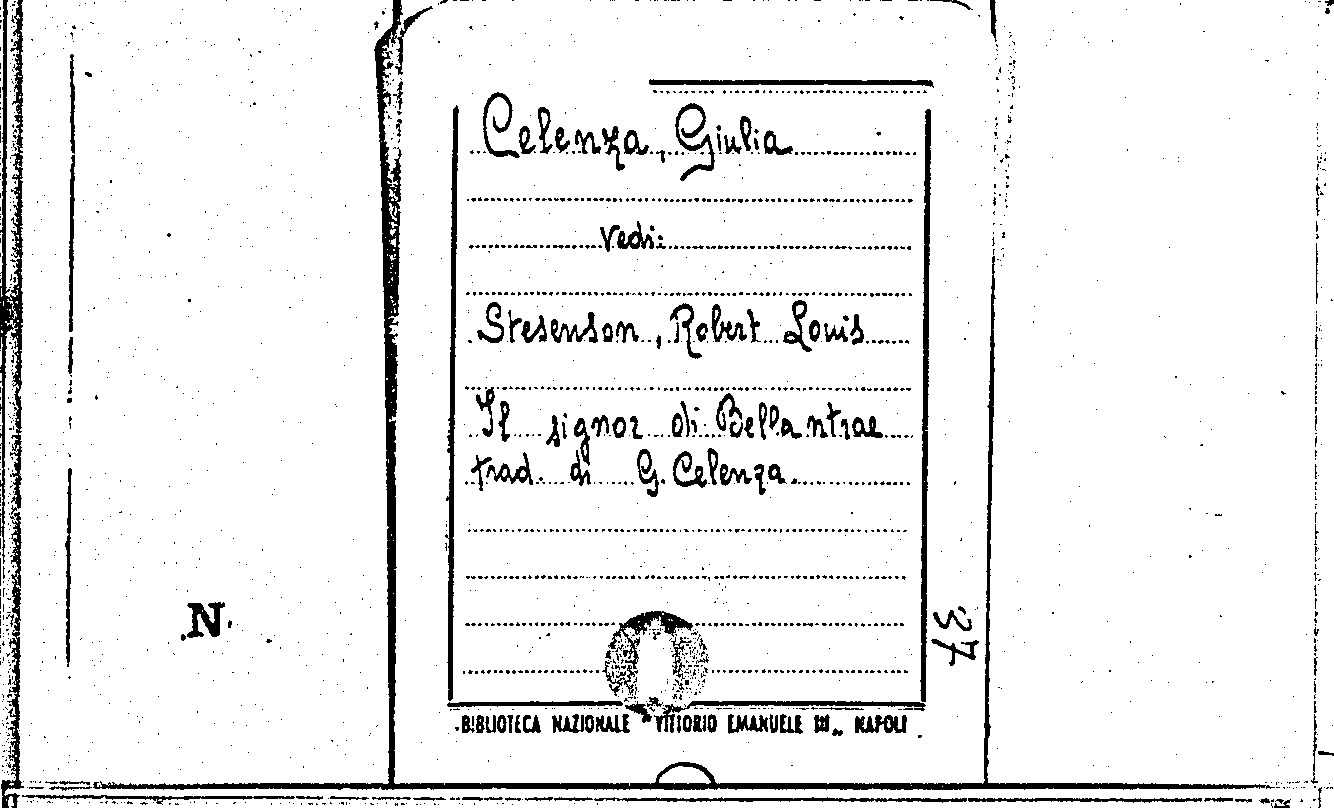 Celenza, Giulia
Vedi:
Stevenson, Robert Louis
Il signor di Bellantrae
trad. di G. Celenza.
N.
37
BIBLIOTECA NAZIONALE "VITTORIO EMANUELE III„ NAPOLI